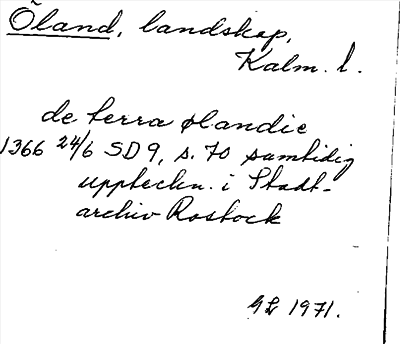 Öland, landskap,
Kalm. l.
de terra ølandie
1366 24/6 SD 9, s. 70 samtidig
uppteckn. i Stadt-
archiv Rostock
GL 1971.